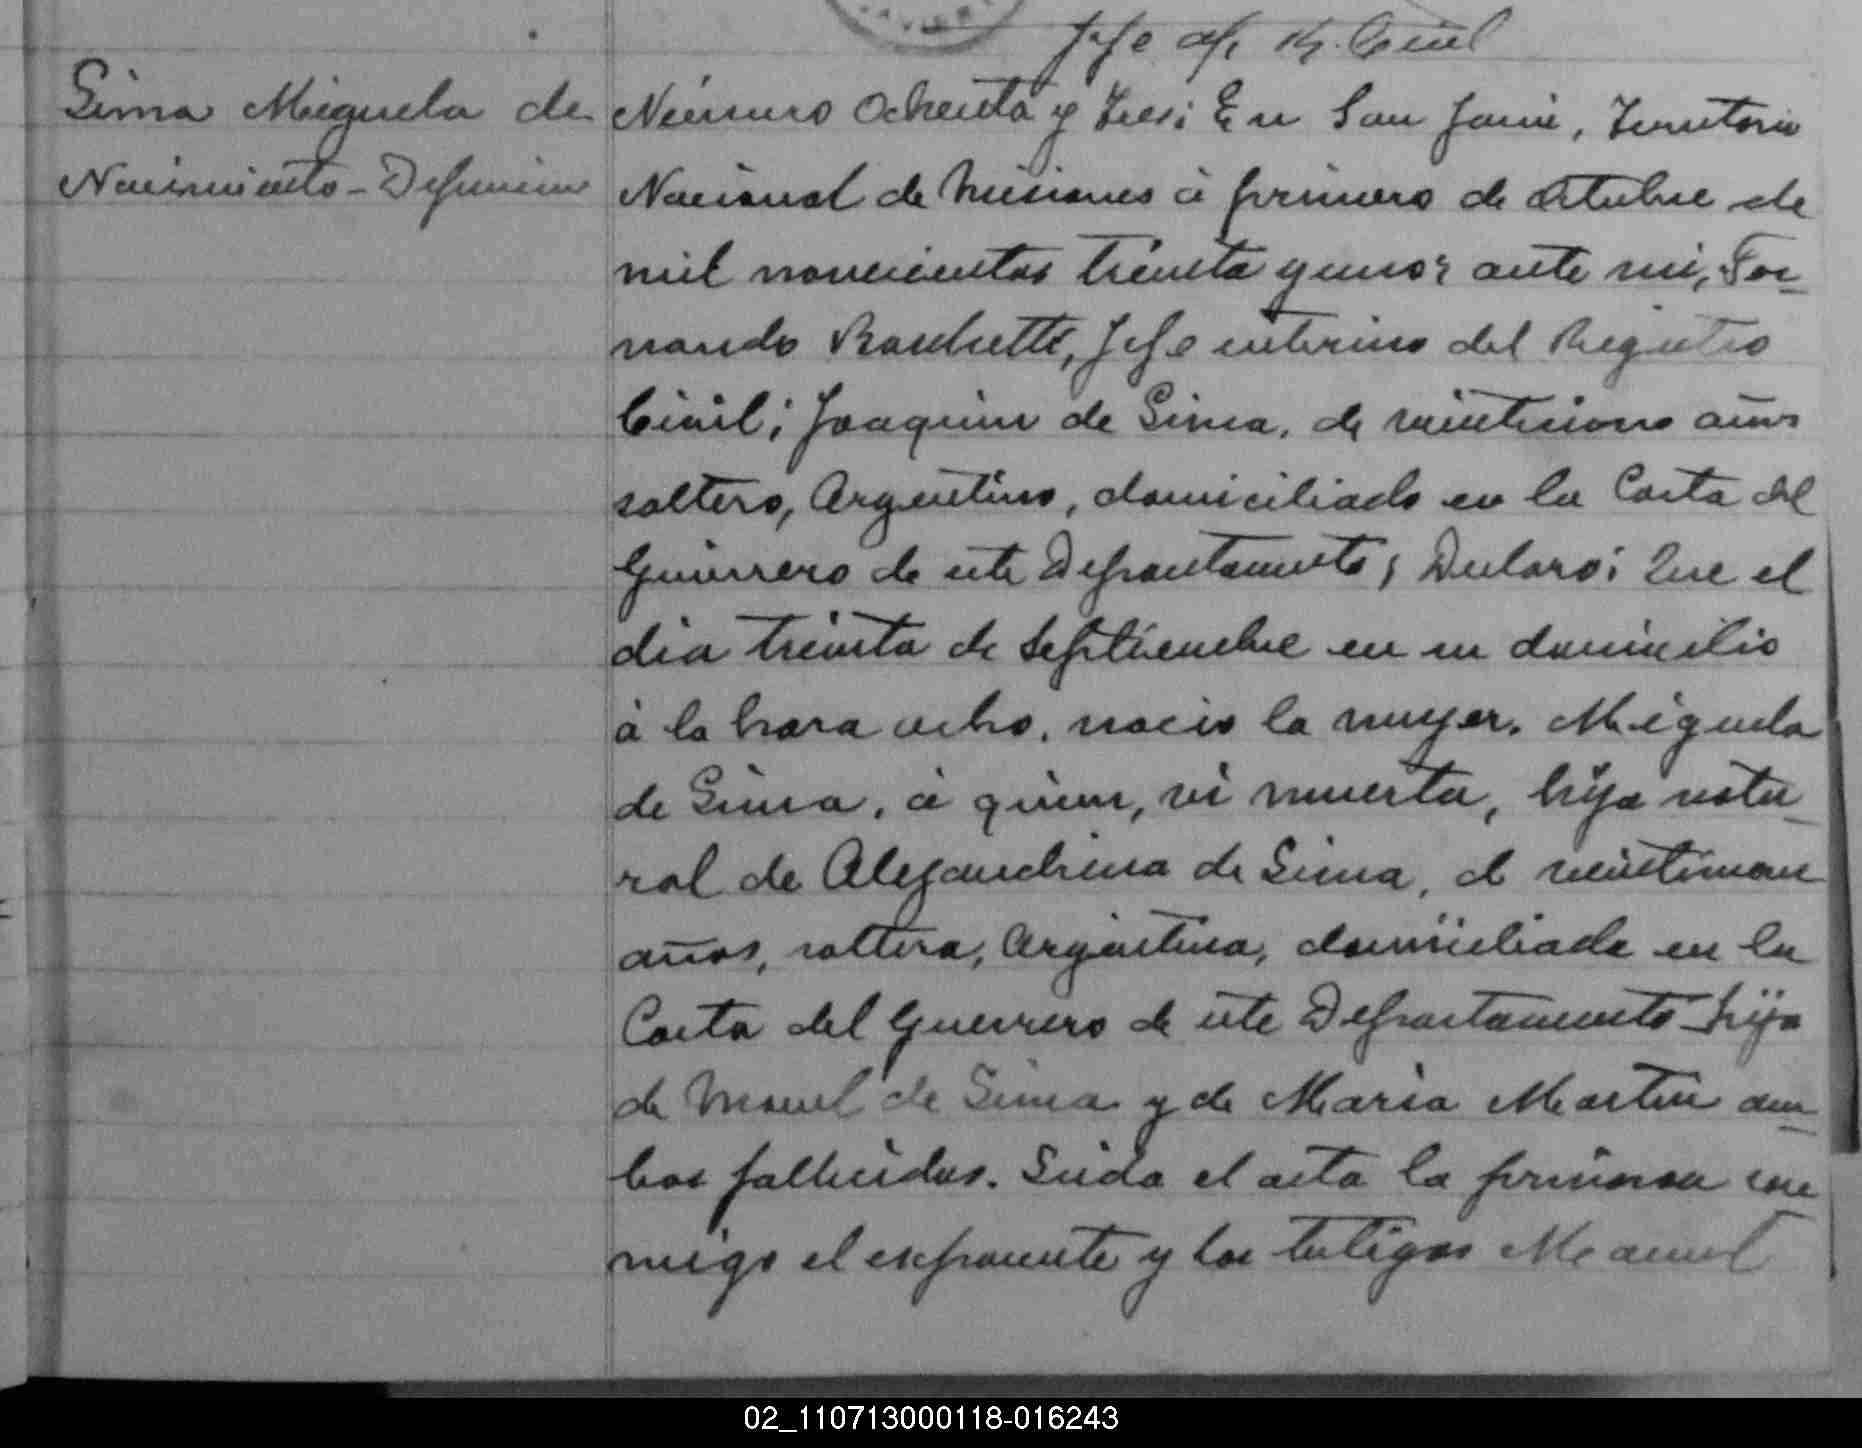 Jefe del R. Civil
Lima Miguela de
Nacimiento-Defuncion
Número Ochenta y tres: En San Javier, Territorio
Nacional de Misiones á primero de Octubre de
mil novecientos treinta y uno: ante mi, Fer-
nando Jefe interino del Registro
Civil; Joaquin de Lima, de años
soltero, Argentino, domiciliado en la Costa del
Guerrero de este Departamento; Declaró: Que el
dia treinta de Septiembre en su domicilio
á la hora ocho, nacio la mujer, Miguela
de Lima, á quien, vi muerta, hija natu-
ral de Alejandrina de Lima, de veintinueve
años, soltera, Argentina, domiciliada en la
Costa del Guerrero de este Departamento hija
de Manuel de Lima y de Maria Martin am-
bos fallecidos. Leida el acta la firmaron con
migo el exponente y los testigos Manuel
02_110713000118-016243